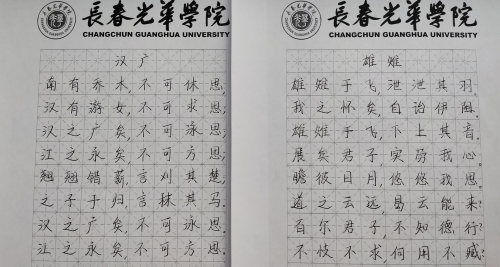 長春光華學院
CHANGCHUN GUANGHUA UNIVERSITY
汉广
南有乔木,不可休思;
汉有游女,不可求思;
汉之广矣,不可泳思;
江之永矣,不可方思;
翘翘错薪,言刈其楚;
之子于归,言秣其马;
汉之广矣,不可泳思;
江之永矣,不可方思。
長春光華學院
CHANGCHUN GUANGHUA UNIVERSITY
雄雉
雄雉于飞,泄泄其羽。
我之怀矣,自诒伊阻。
雄雉于飞,下上其音。
展矣君子,实劳我心。
瞻彼日月,悠悠我思。
道之云远,曷云能来?
百尔君子,不知德行?
不忮不求,何用不臧?